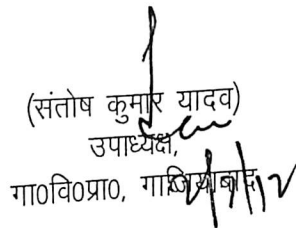 (संतोष कुमार यादव)
उपाध्यक्ष,
गा०वि०प्रा०, गाजियाबाद